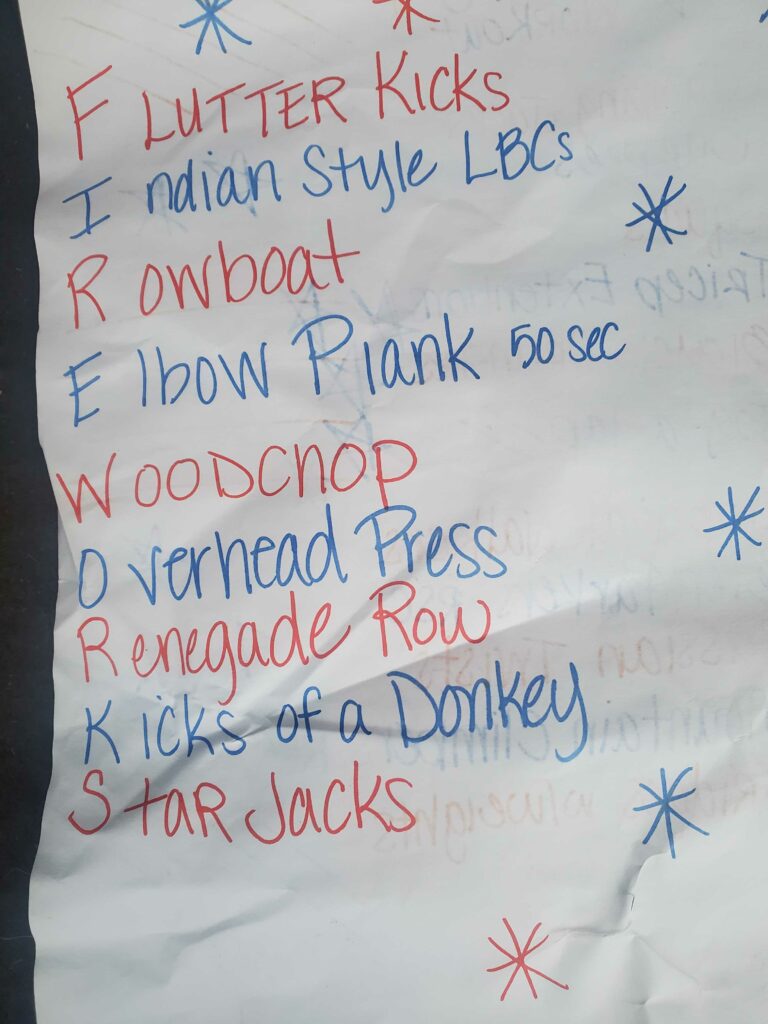 FLUTTER Kicks
Indian Style LBCs
Rowboat
Elbow Plank 50 sec
WOODCHOP
Overhead Press
Renegade Row
Kicks of a Donkey
Star Jacks